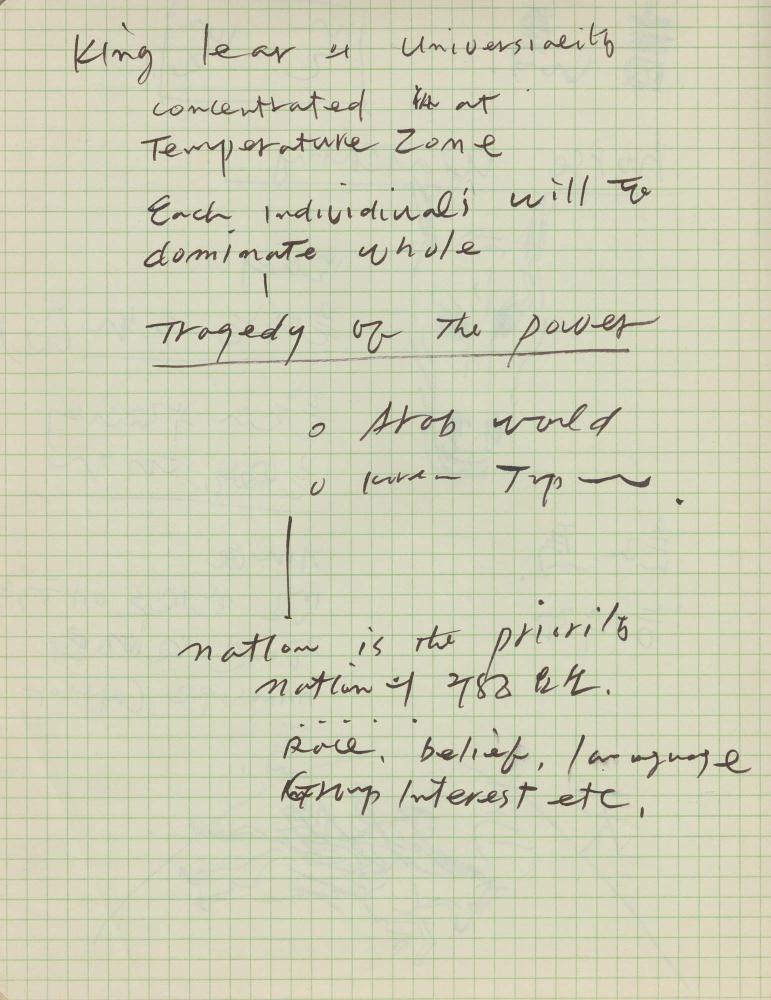 King lear 의 Universiality
concentrated at
Temperature Zone
Each individinal's will to
dominate whole
Tragedy of the power
o Arab world
o
nation is the priority
nation의 구성 요소.
Race, belief, language
Group Interest etc,